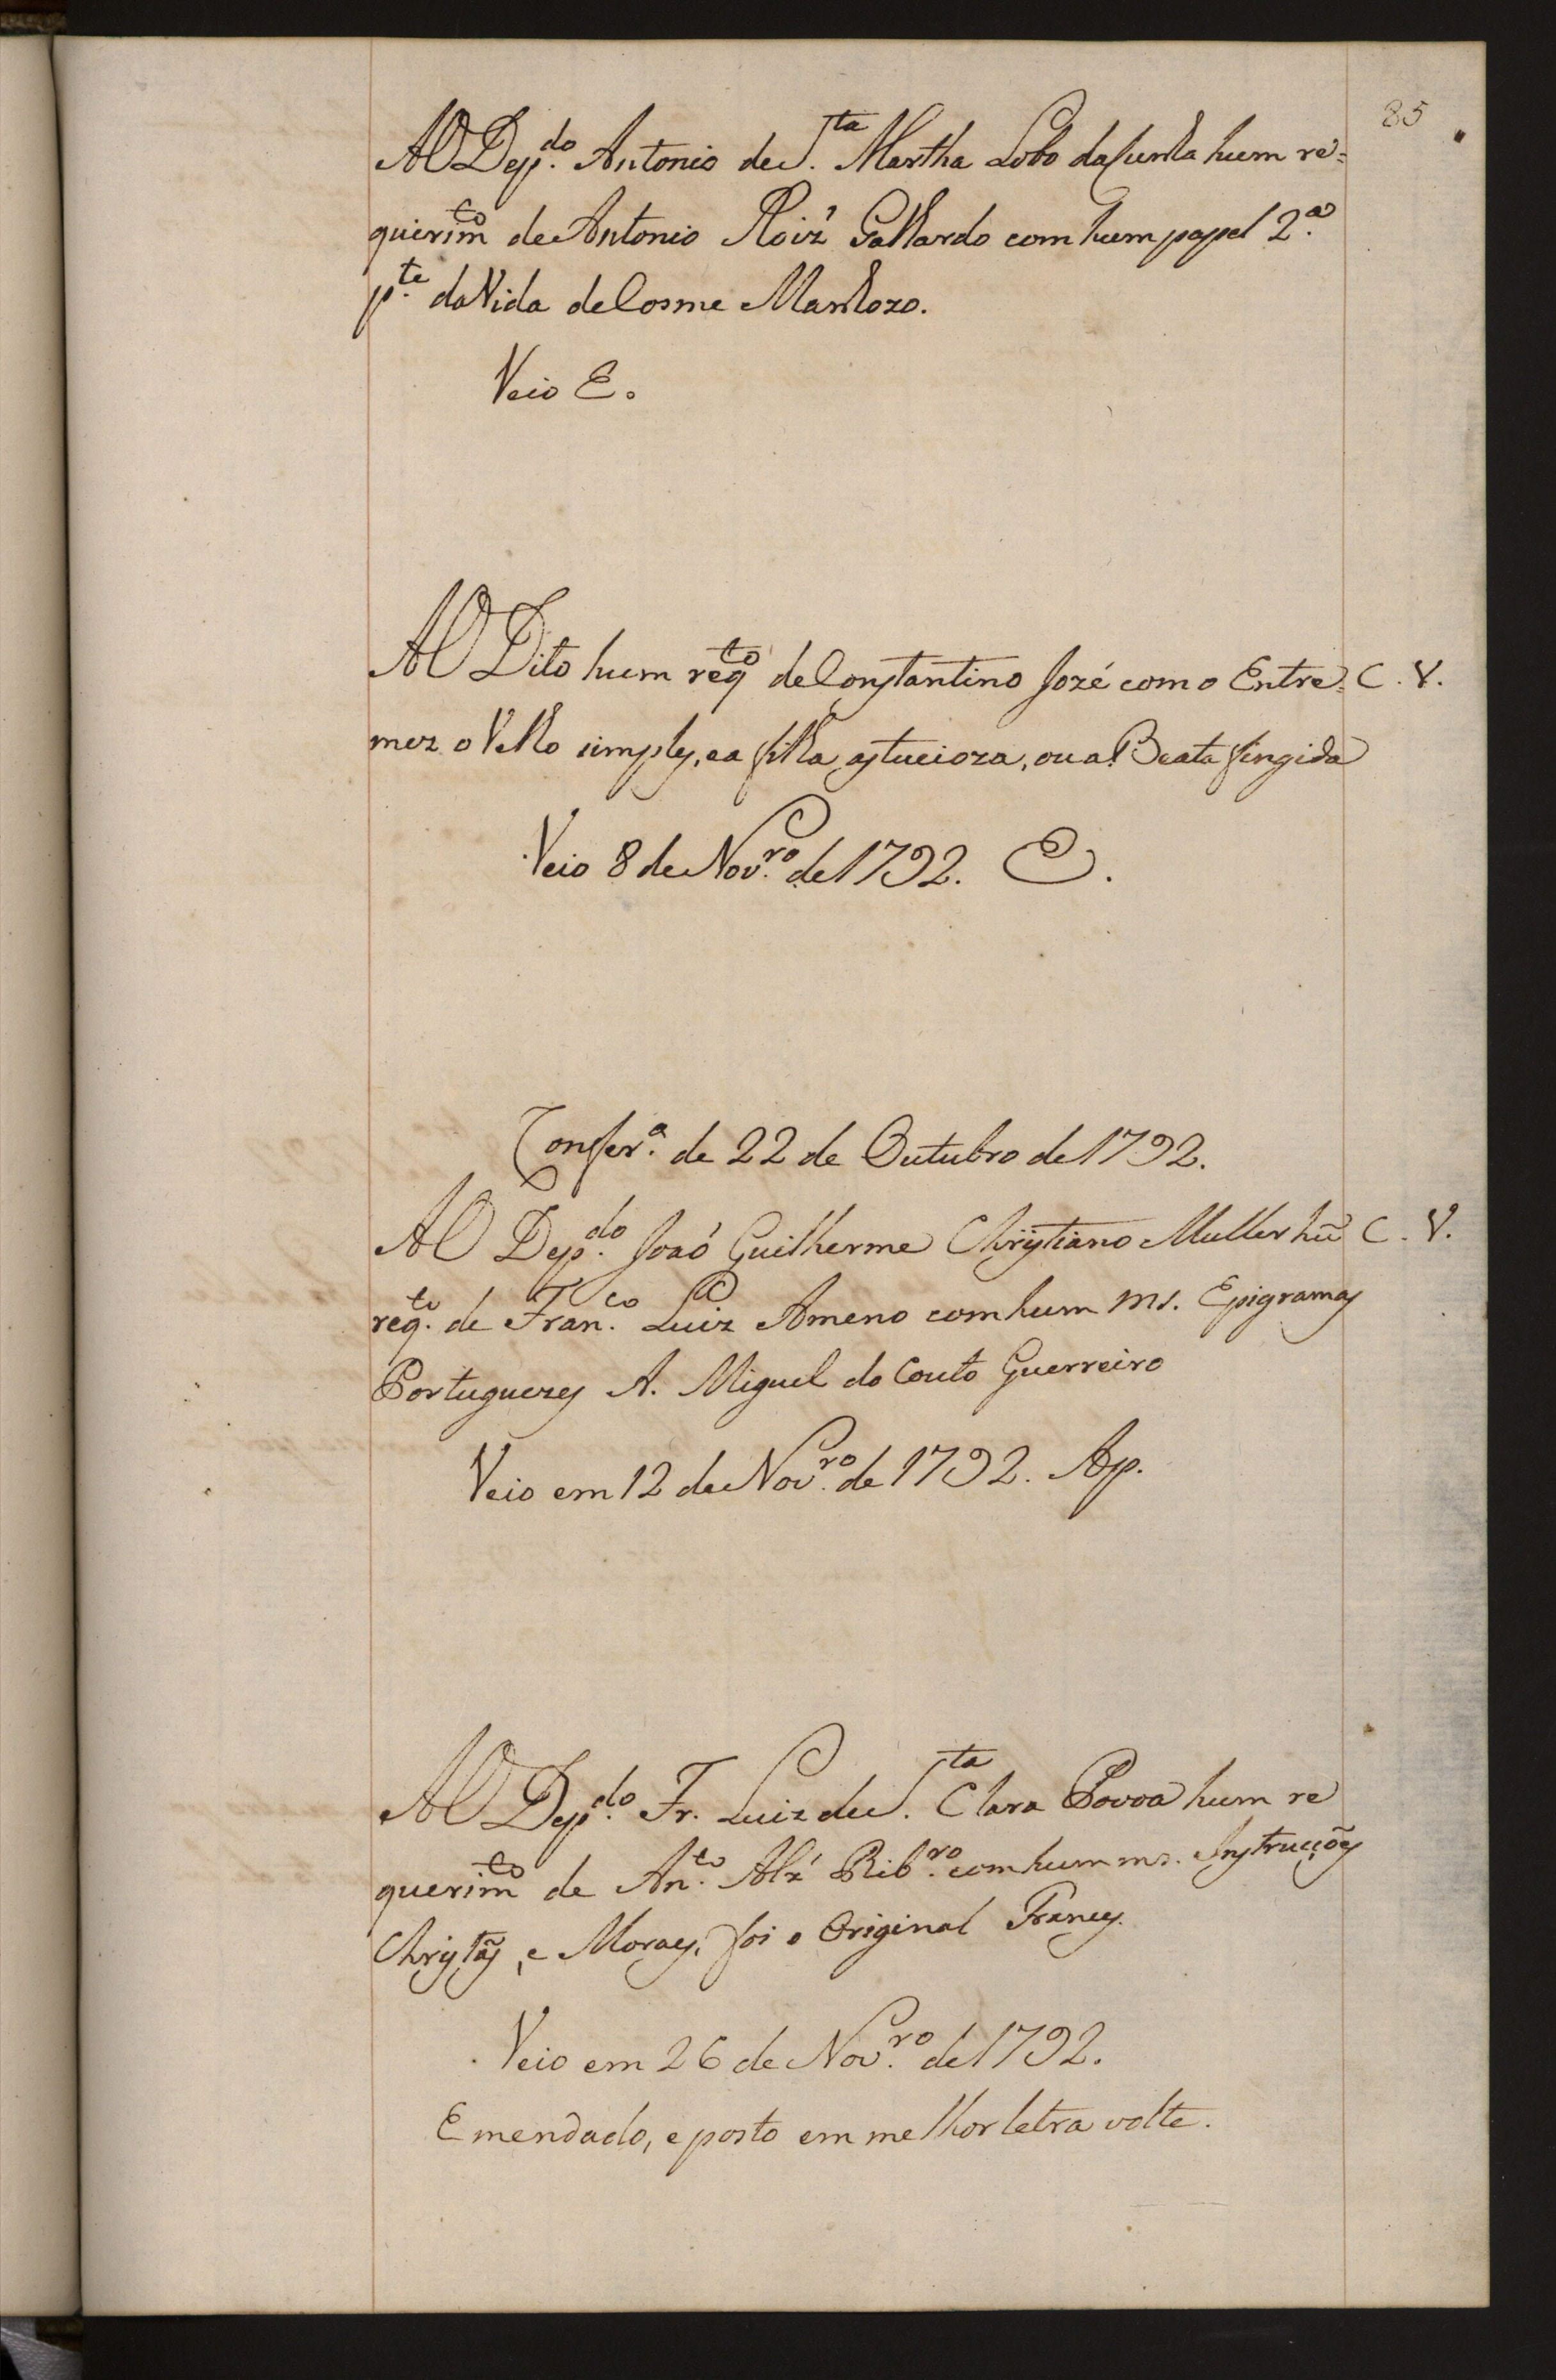 85
AO Dep.do Antonio de S.ta Martha Lobo da Cunha hum re=
querimto de Antonio Roiz' Galhardo com hum papel 2.a
p.te da Vida de Cosme Manhozo.
Veio E.
AO Dito hum reqto de Constantino Jozé com o Entre= C. V.
mez o Velho simples, e a filha astucioza, ou a Beata fingida
Veio 8 de Nov.ro de 1792. E.
Confer.a de 22 de Outubro de 1792.
AO Dep.do Joaó Guilherme Christiano Muller hũ C. V.
req.to de Fran.co Luiz Ameno com hum ms. Epigramas
Portuguezes A. Miguel do Couto Guerreiro
Veio em 12 de Nov.ro de 1792. Ap.
AO Dep.do Fr. Luiz de S.ta Clara Povoa hum re
querimto de An.to Alz' Rib.ro com hum ms. Instrucções
Christãs, e Moraes, foi o Original Frances.
Veio em 26 de Nov.ro de 1792.
Emendado, e posto em melhor letra volte.